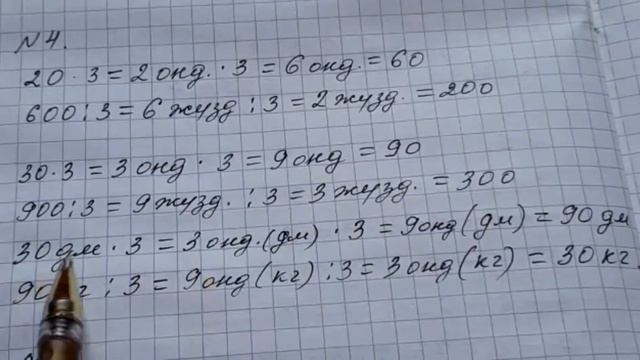 N 4.
20 · 3 = 2 онд. · 3 = 6 онд. = 60
600 : 3 = 6 жүзд : 3 = 2 жүзд. = 200
30 · 3 = 3 онд · 3 = 9 онд = 90
900 : 3 = 9 жүзд. : 3 = 3 жүзд. = 300
30 дм · 3 = 3 онд. (дм) · 3 = 9 онд (дм) = 90 дм
: 3 = 9 онд (кг) : 3 = 3 онд (кг) = 30 кг.